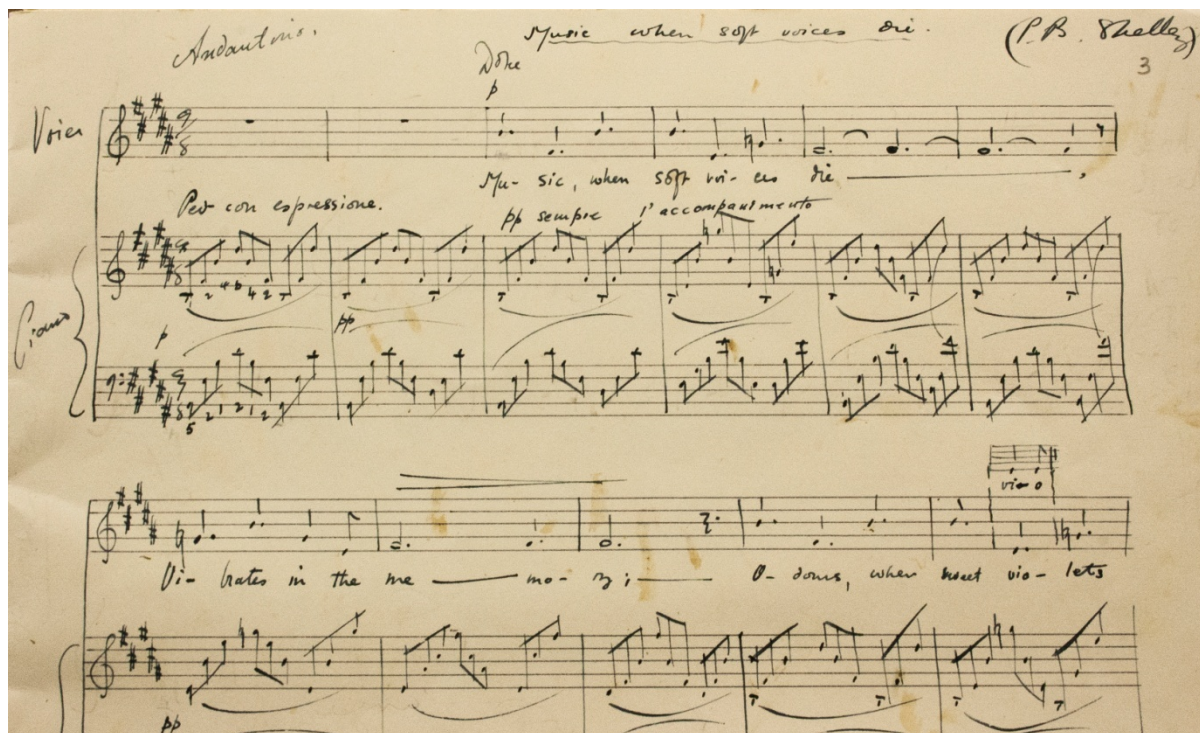 Andantino. Music when soft voices die. (P. B. Shelley)
3
Dolce
p
Voice
Mu- sic, when soft voi- ces die ,
Ped con espressione. pp sempre l'accompanimento
Piano
T 2 4 2 T T T T T T T T T T T
p pp
5 2 1 2 1 2
vi- o
Vi- brates in the me mo- ry; O- dours, when sweet vio- lets
T T T T
pp